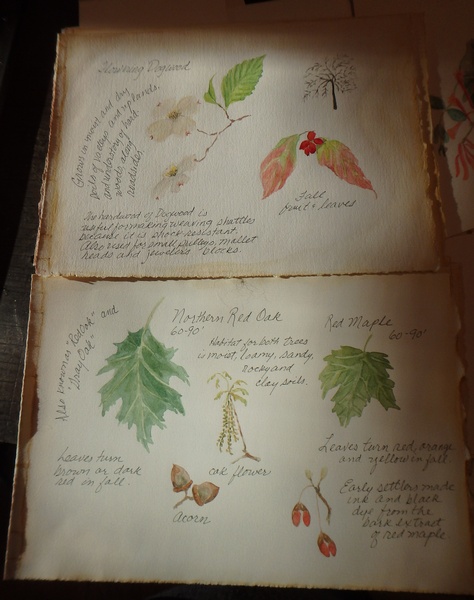 Flowering Dogwood
Grows in moist and dry
soils of valleys and uplands.
and understory of hard
woods along
roadsides.
Fall
fruit & leaves
The hardwood of Dogwood is
useful for making weaving shuttles
because it is shock-resistant.
Also used for small pulleys, mallet
heads and jewelers' blocks.
Also known as "Red Oak" and
"Gray Oak"
Northern Red Oak
60-90'
Habitat for both trees
is moist, loamy, sandy,
rocky and
clay soils.
Red Maple
60-90'
Leaves turn
brown or dark
red in fall.
oak flower
Acorn
Leaves turn red, orange
and yellow in fall.
Early settlers made
ink and black
dye from the
bark extract
of red maple